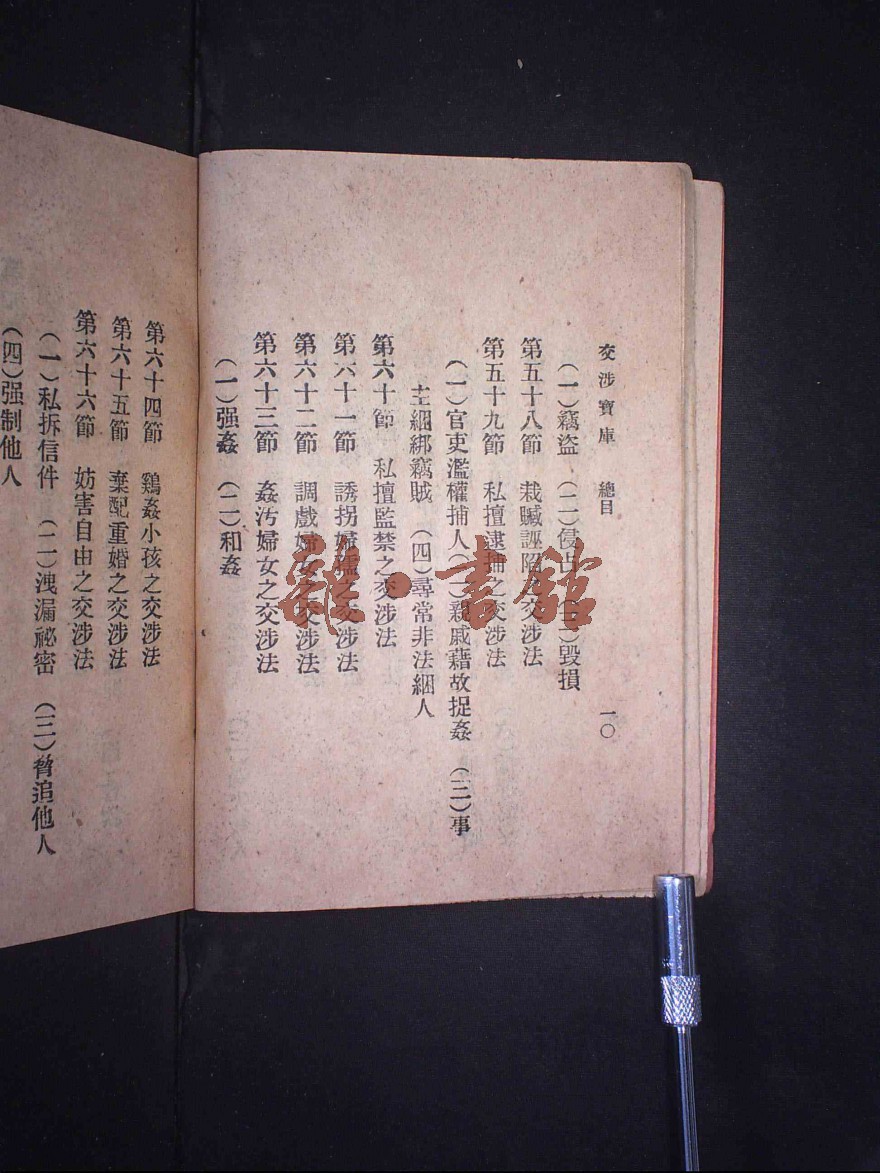 交涉寶庫 總目 一〇
(一)竊盜 (二)侵占 (三)毀損
第五十八節 栽贓誣陷之交涉法
第五十九節 私擅逮捕之交涉法
(一)官吏濫權捕人(二)親戚藉故捉姦 (三)事
主綑綁竊賊 (四)尋常非法綑人
第六十節 私擅監禁之交涉法
第六十一節 誘拐婦孺之交涉法
第六十二節 調戲婦女之交涉法
第六十三節 姦汚婦女之交涉法
(一)强姦 (二)和姦
第六十四節 鷄姦小孩之交涉法
第六十五節 棄配重婚之交涉法
第六十六節 妨害自由之交涉法
(一)私拆信件 (二)洩漏祕密 (三)脅迫他人
(四)强制他人
雜·書館